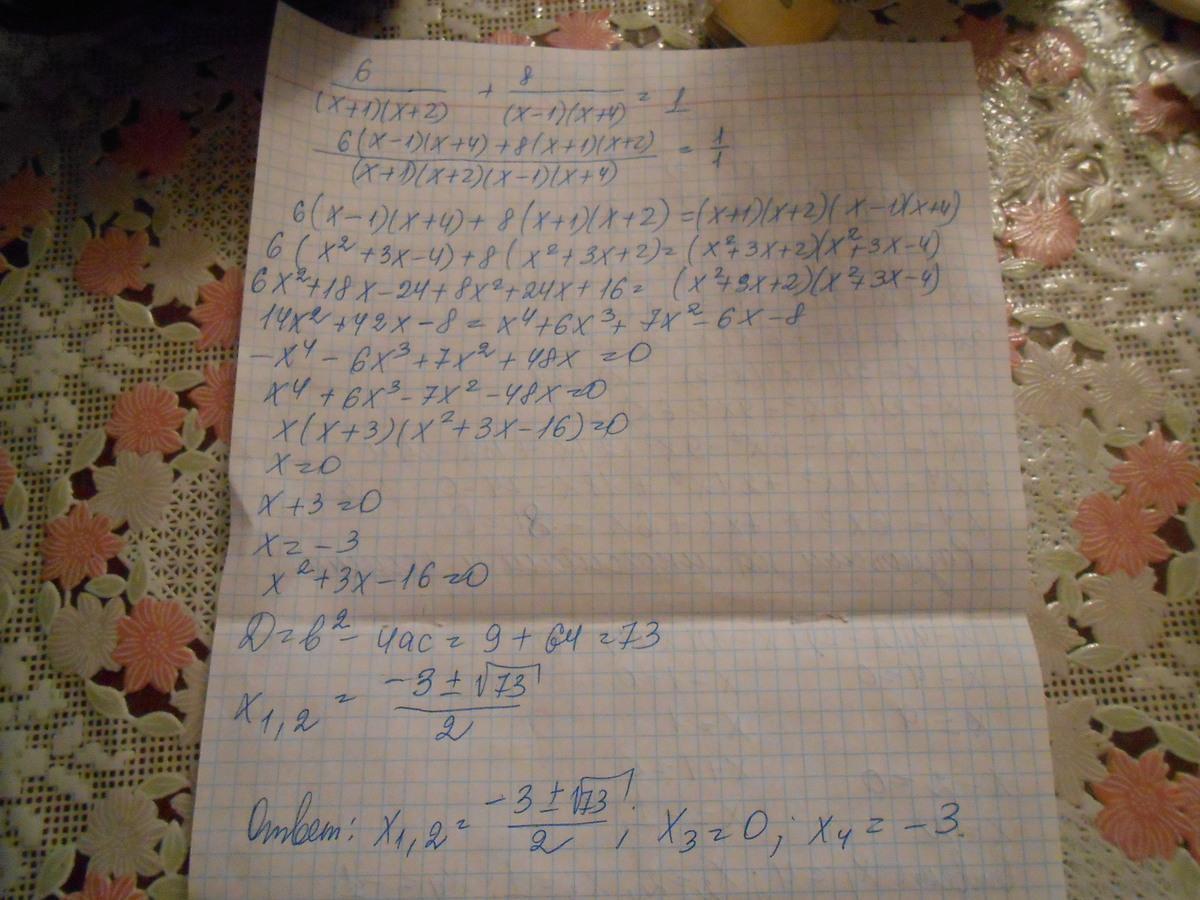 6/((x+1)(x+2)) + 8/((x-1)(x+4)) = 1
(6(x-1)(x+4)+8(x+1)(x+2))/((x+1)(x+2)(x-1)(x+4)) = 1/1
6(x-1)(x+4)+8(x+1)(x+2)=(x+1)(x+2)(x-1)(x+4)
6(x²+3x-4)+8(x²+3x+2)=(x²+3x+2)(x²+3x-4)
6x²+18x-24+8x²+24x+16=(x²+3x+2)(x²+3x-4)
14x²+42x-8=x⁴+6x³+7x²-6x-8
-x⁴-6x³+7x²+48x=0
x⁴+6x³-7x²-48x=0
x(x+3)(x²+3x-16)=0
x=0
x+3=0
x=-3
x²+3x-16=0
D=b²-4ac=9+64=73
x₁,₂=(-3±√73)/2
Ответ: x₁,₂=(-3±√73)/2; x₃=0; x₄=-3.